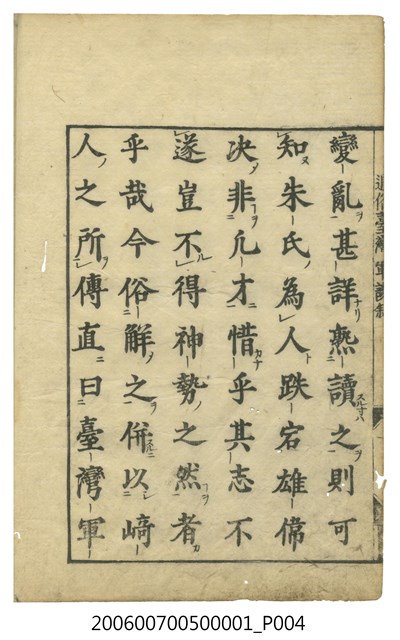 通俗臺灣軍談叙
變亂甚詳熟讀之則可
知朱氏為人跌宕雄偉
决非凢才惜乎其志不
遂豈不得神勢之然者
乎哉今俗解之併以﨑
人之所傳直曰臺灣軍
200600700500001_P004